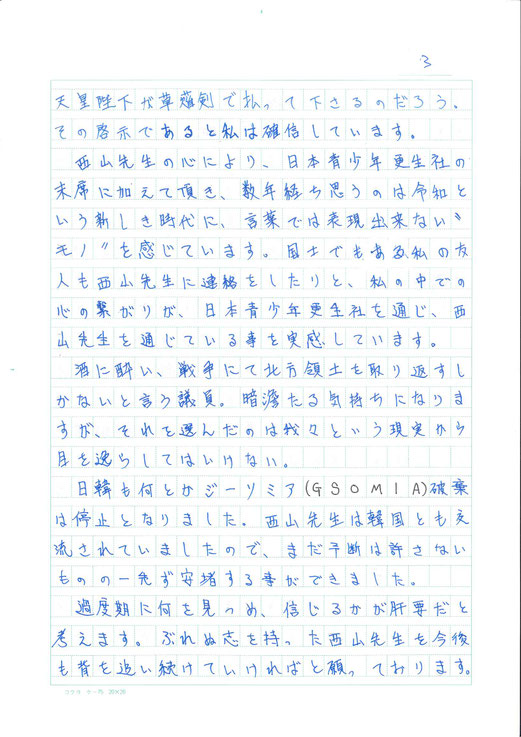 3
天皇陛下が草薙剣で払って下さるのだろう。
その啓示であると私は確信しています。
西山先生の心により、日本青少年更生社の
末席に加えて頂き、数年経ち思うのは令和と
いう新しき時代に、言葉では表現出来ない〝
モノ〟を感じています。国士でもある私の友
人も西山先生に連絡をしたりと、私の中での
心の繋がりが、日本青少年更生社を通じ、西
山先生を通じている事を実感しています。
酒に酔い、戦争にて北方領土を取り返すし
かないと言う議員。暗澹たる気持ちになりま
すが、それを選んだのは我々という現実から
目を逸らしてはいけない。
日韓も何とかジーソミア(GSOMIA)破棄
は停止となりました。西山先生は韓国とも交
流されていましたので、まだ予断は許さない
ものの一先ず安堵する事ができました。
過度期に何を見つめ、信じるかが肝要だと
考えます。ぶれぬ志を持った西山先生を今後
も背を追い続けていければと願っております。
コクヨ ケー75 20×20